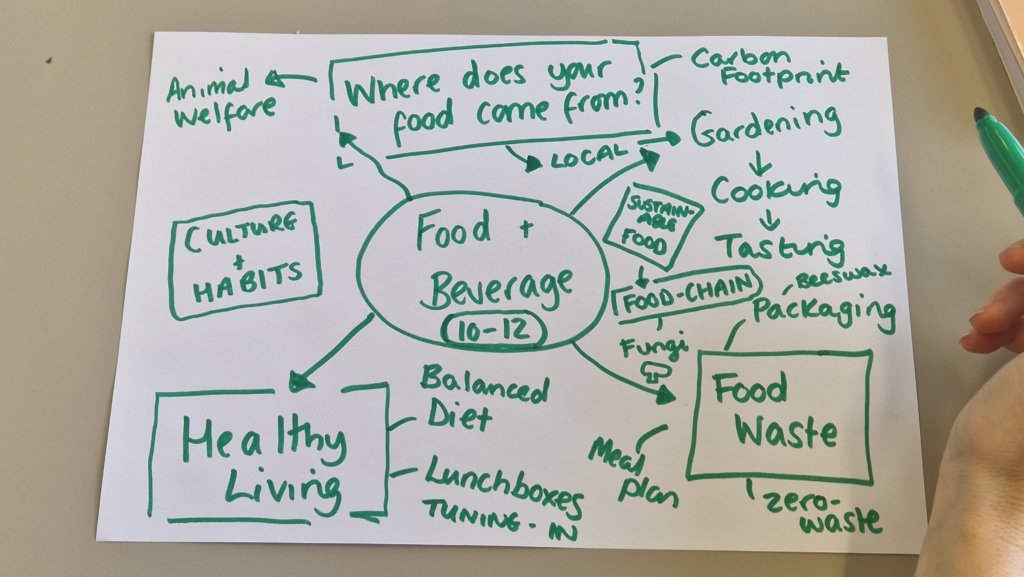 Animal
Welfare
Where does your
food come from?
Carbon
Footprint
LOCAL
Gardening
Cooking
Tasting
SUSTAIN-
ABLE
FOOD
FOOD-CHAIN
Fungi
CULTURE
+
HABITS
Food +
Beverage
10-12
Beeswax
Packaging
Food
Waste
Meal
plan
zero-
waste
Healthy
Living
Balanced
Diet
Lunchboxes
TUNING-IN